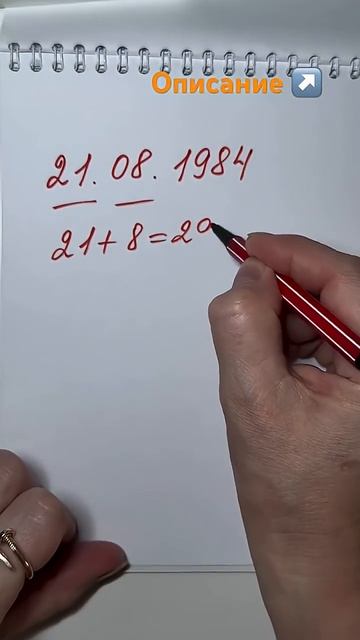 Описание ↗
21. 08. 1984
21+8=29